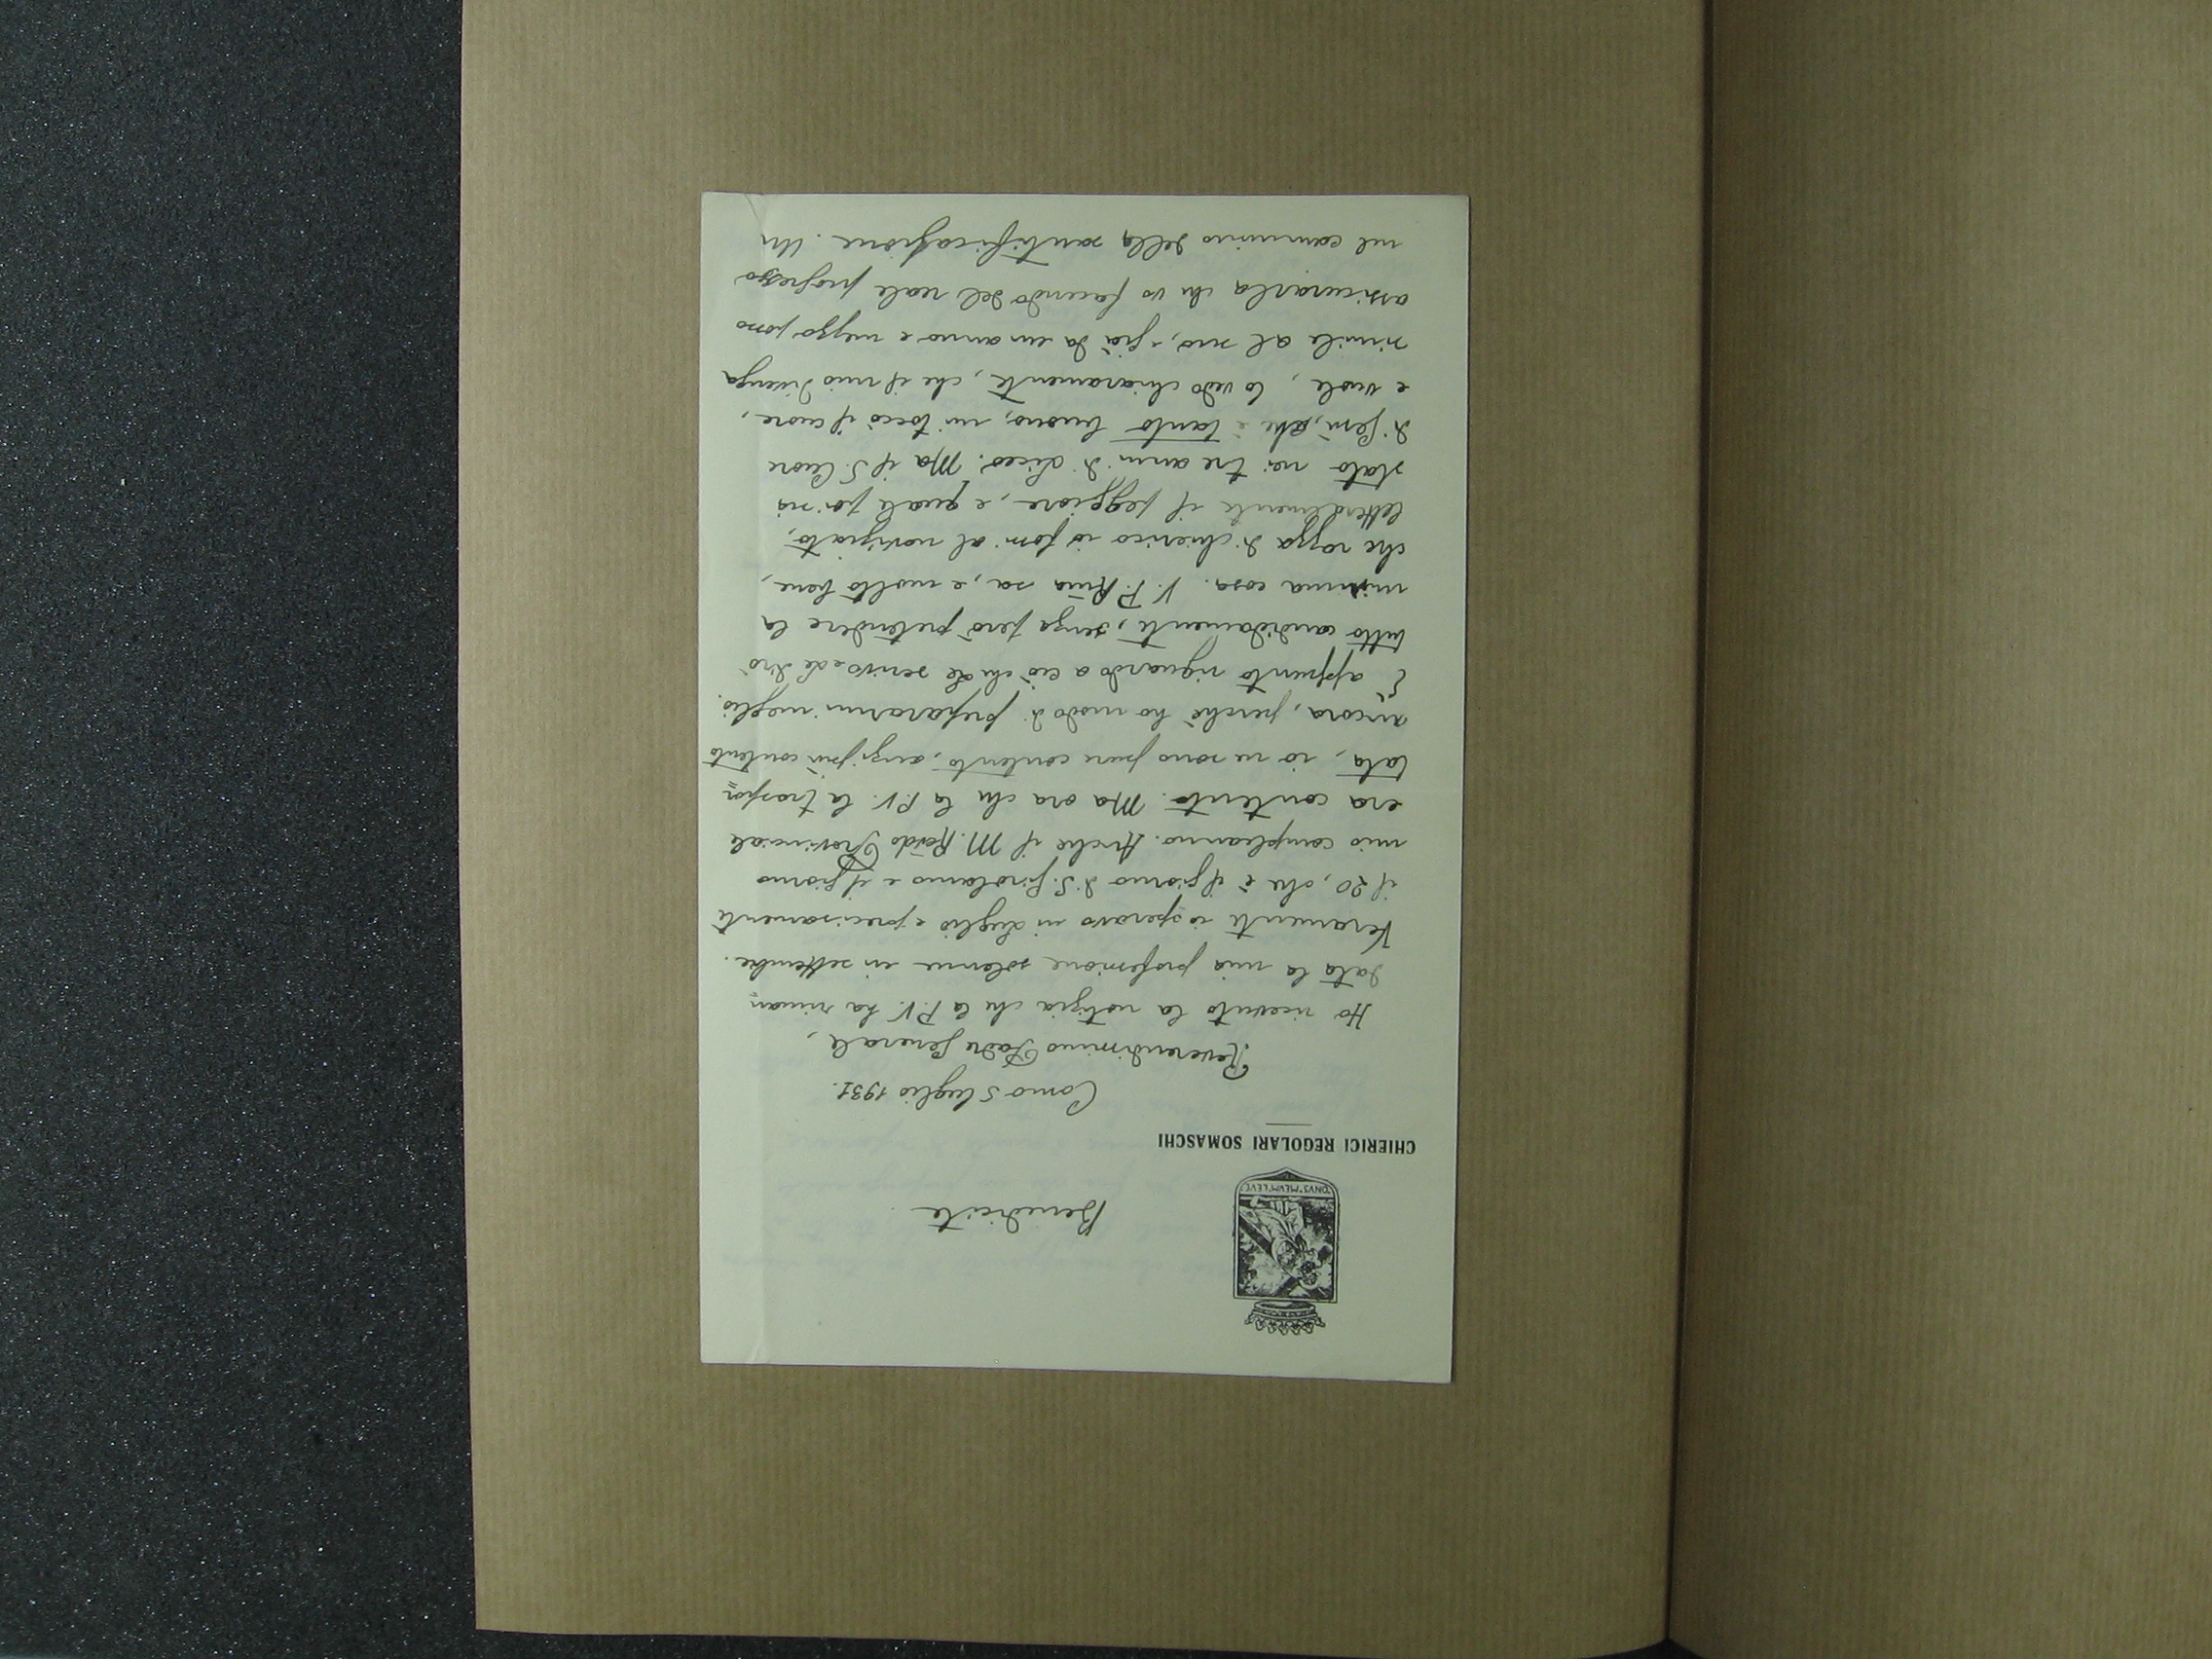 ONVS·MEVM·LEVE
Benedicite
CHIERICI REGOLARI SOMASCHI
Como 5 luglio 1931.
Reverendissimo Padre Generale,
Ho ricevuto la notizia che la P.V. ha riman=
data la mia professione solenne in settembre.
Veramente io speravo in luglio e precisamente
il 20, che è il giorno di S. Girolamo e il giorno
mio compleanno. Anche il M. Rev.do Provinciale
era contento. Ma ora che la P.V. la traspor=
tata, io ne sono pure contento, anzi più contento
ancora, perché ho modo di prepararmi meglio.
È appunto riguardo a ciò che Le scrivo e Le dirò
tutto candidamente, senza però pretendere la
minima cosa. V. P. Rma sa, e molto bene,
che razza di chierico io fossi al noviziato,
letteralmente il peggiore, e quale poi sia
stato nei tre anni di Liceo. Ma il S. Cuore
di Gesù, che è tanto buono, mi toccò il cuore,
e vuole, lo vedo chiaramente, che il mio divenga
simile al suo, e già da un anno e mezzo posso
assicurarla che vo facendo del reale progresso
nel cammino della santificazione. Un